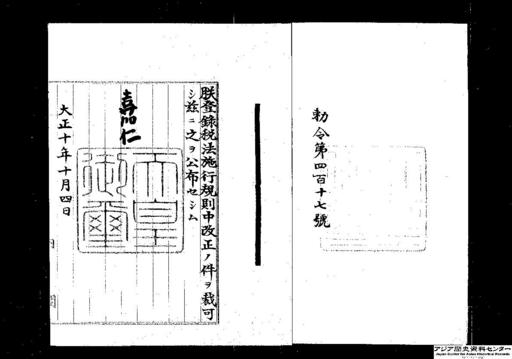 勅令第四百十七號
朕登録税法施行規則中改正ノ件ヲ裁可
シ茲ニ之ヲ公布セシム
嘉仁
天皇御璽
大正十年十月四日
アジア歴史資料センター
Japan Center for Asian Historical Records